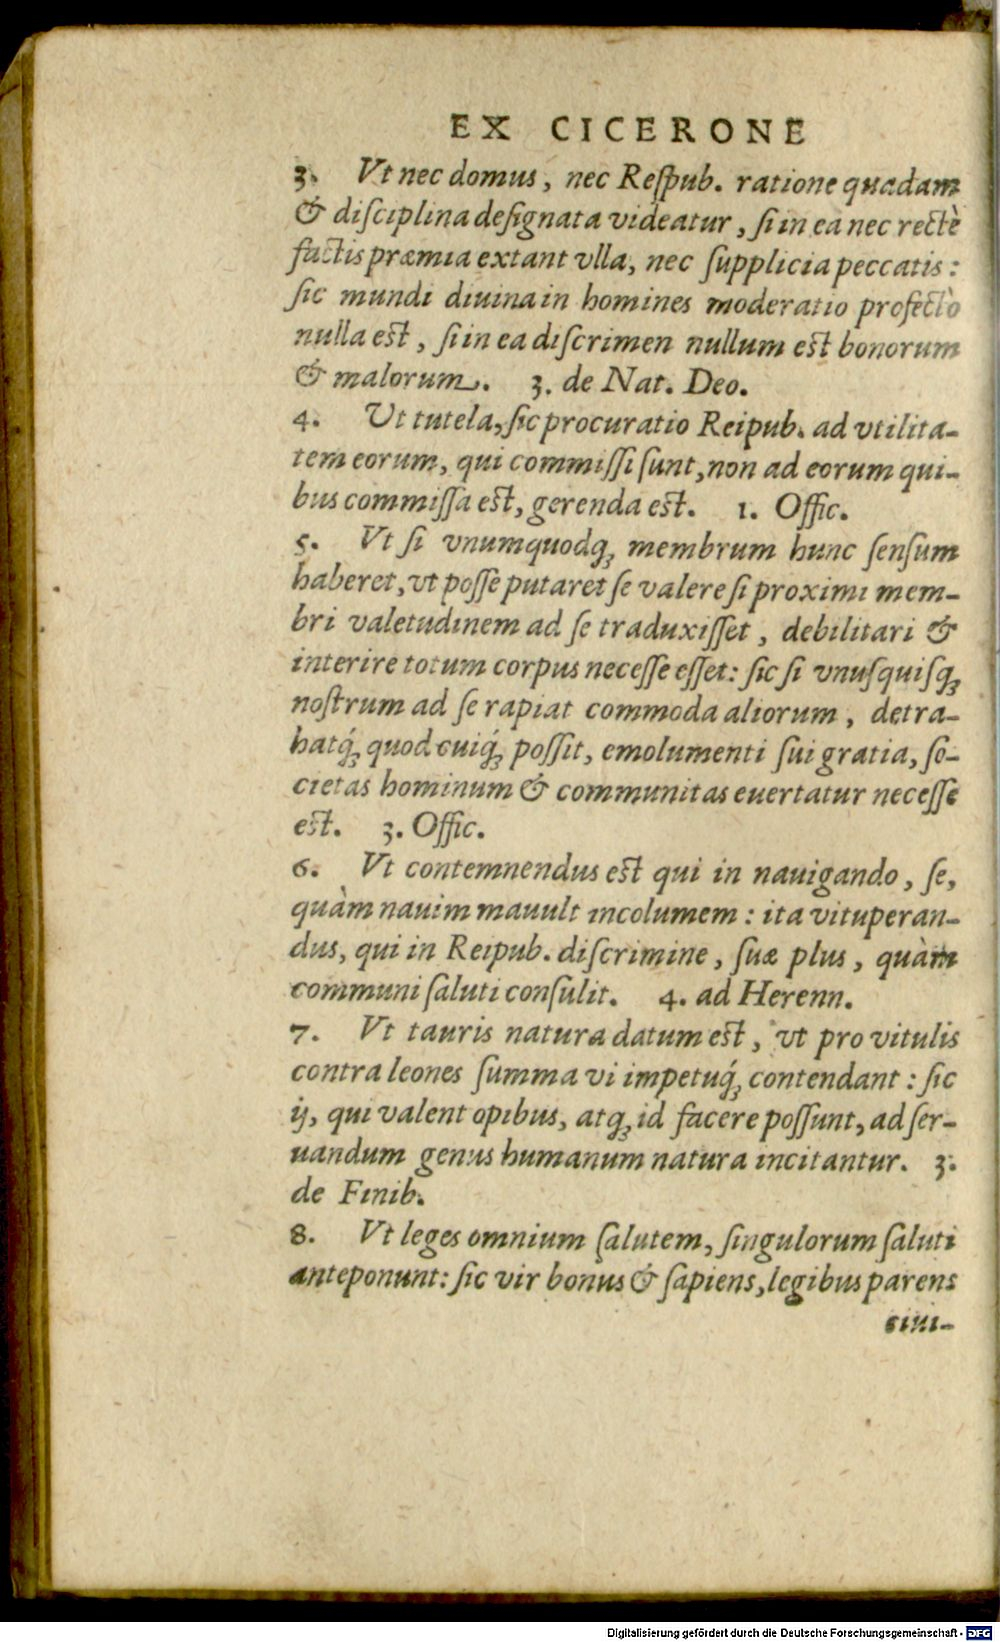 EX CICERONE
3. Vt nec domus, nec Reſpub. ratione quadam
& diſciplina deſignata videatur, ſi in ea nec rectè
factis præmia extant vlla, nec ſupplicia peccatis:
ſic mundi diuina in homines moderatio profectò
nulla est, ſi in ea diſcrimen nullum est bonorum
& malorum. 3. de Nat. Deo.
4. Ut tutela, ſic procuratio Reipub. ad vtilita-
tem eorum, qui commiſſi ſunt, non ad eorum qui-
bus commiſſa est, gerenda est. 1. Offic.
5. Vt ſi vnumquodq; membrum hunc ſenſum
haberet, vt poſſe putaret ſe valere ſi proximi mem-
bri valetudinem ad ſe traduxiſſet, debilitari &
interire totum corpus neceſſe eſſet: ſic ſi vnuſquiſq;
noſtrum ad ſe rapiat commoda aliorum, detra-
hatq́; quod cuiq́; poſſit, emolumenti ſui gratia, ſo-
cietas hominum & communitas euertatur neceſſe
est. 3. Offic.
6. Vt contemnendus est qui in nauigando, ſe,
quàm nauim mauult incolumem: ita vituperan-
dus, qui in Reipub. diſcrimine, ſuæ plus, quàm
communi ſaluti conſulit. 4. ad Herenn.
7. Vt tauris natura datum est, vt pro vitulis
contra leones ſumma vi impetuq́; contendant: ſic
ij, qui valent opibus, atq; id facere poſſunt, ad ſer-
uandum genus humanum natura incitantur. 3.
de Finib.
8. Vt leges omnium ſalutem, ſingulorum ſaluti
anteponunt: ſic vir bonus & ſapiens, legibus parens
ciui-
Digitalisierung gefördert durch die Deutsche Forschungsgemeinschaft - DFG